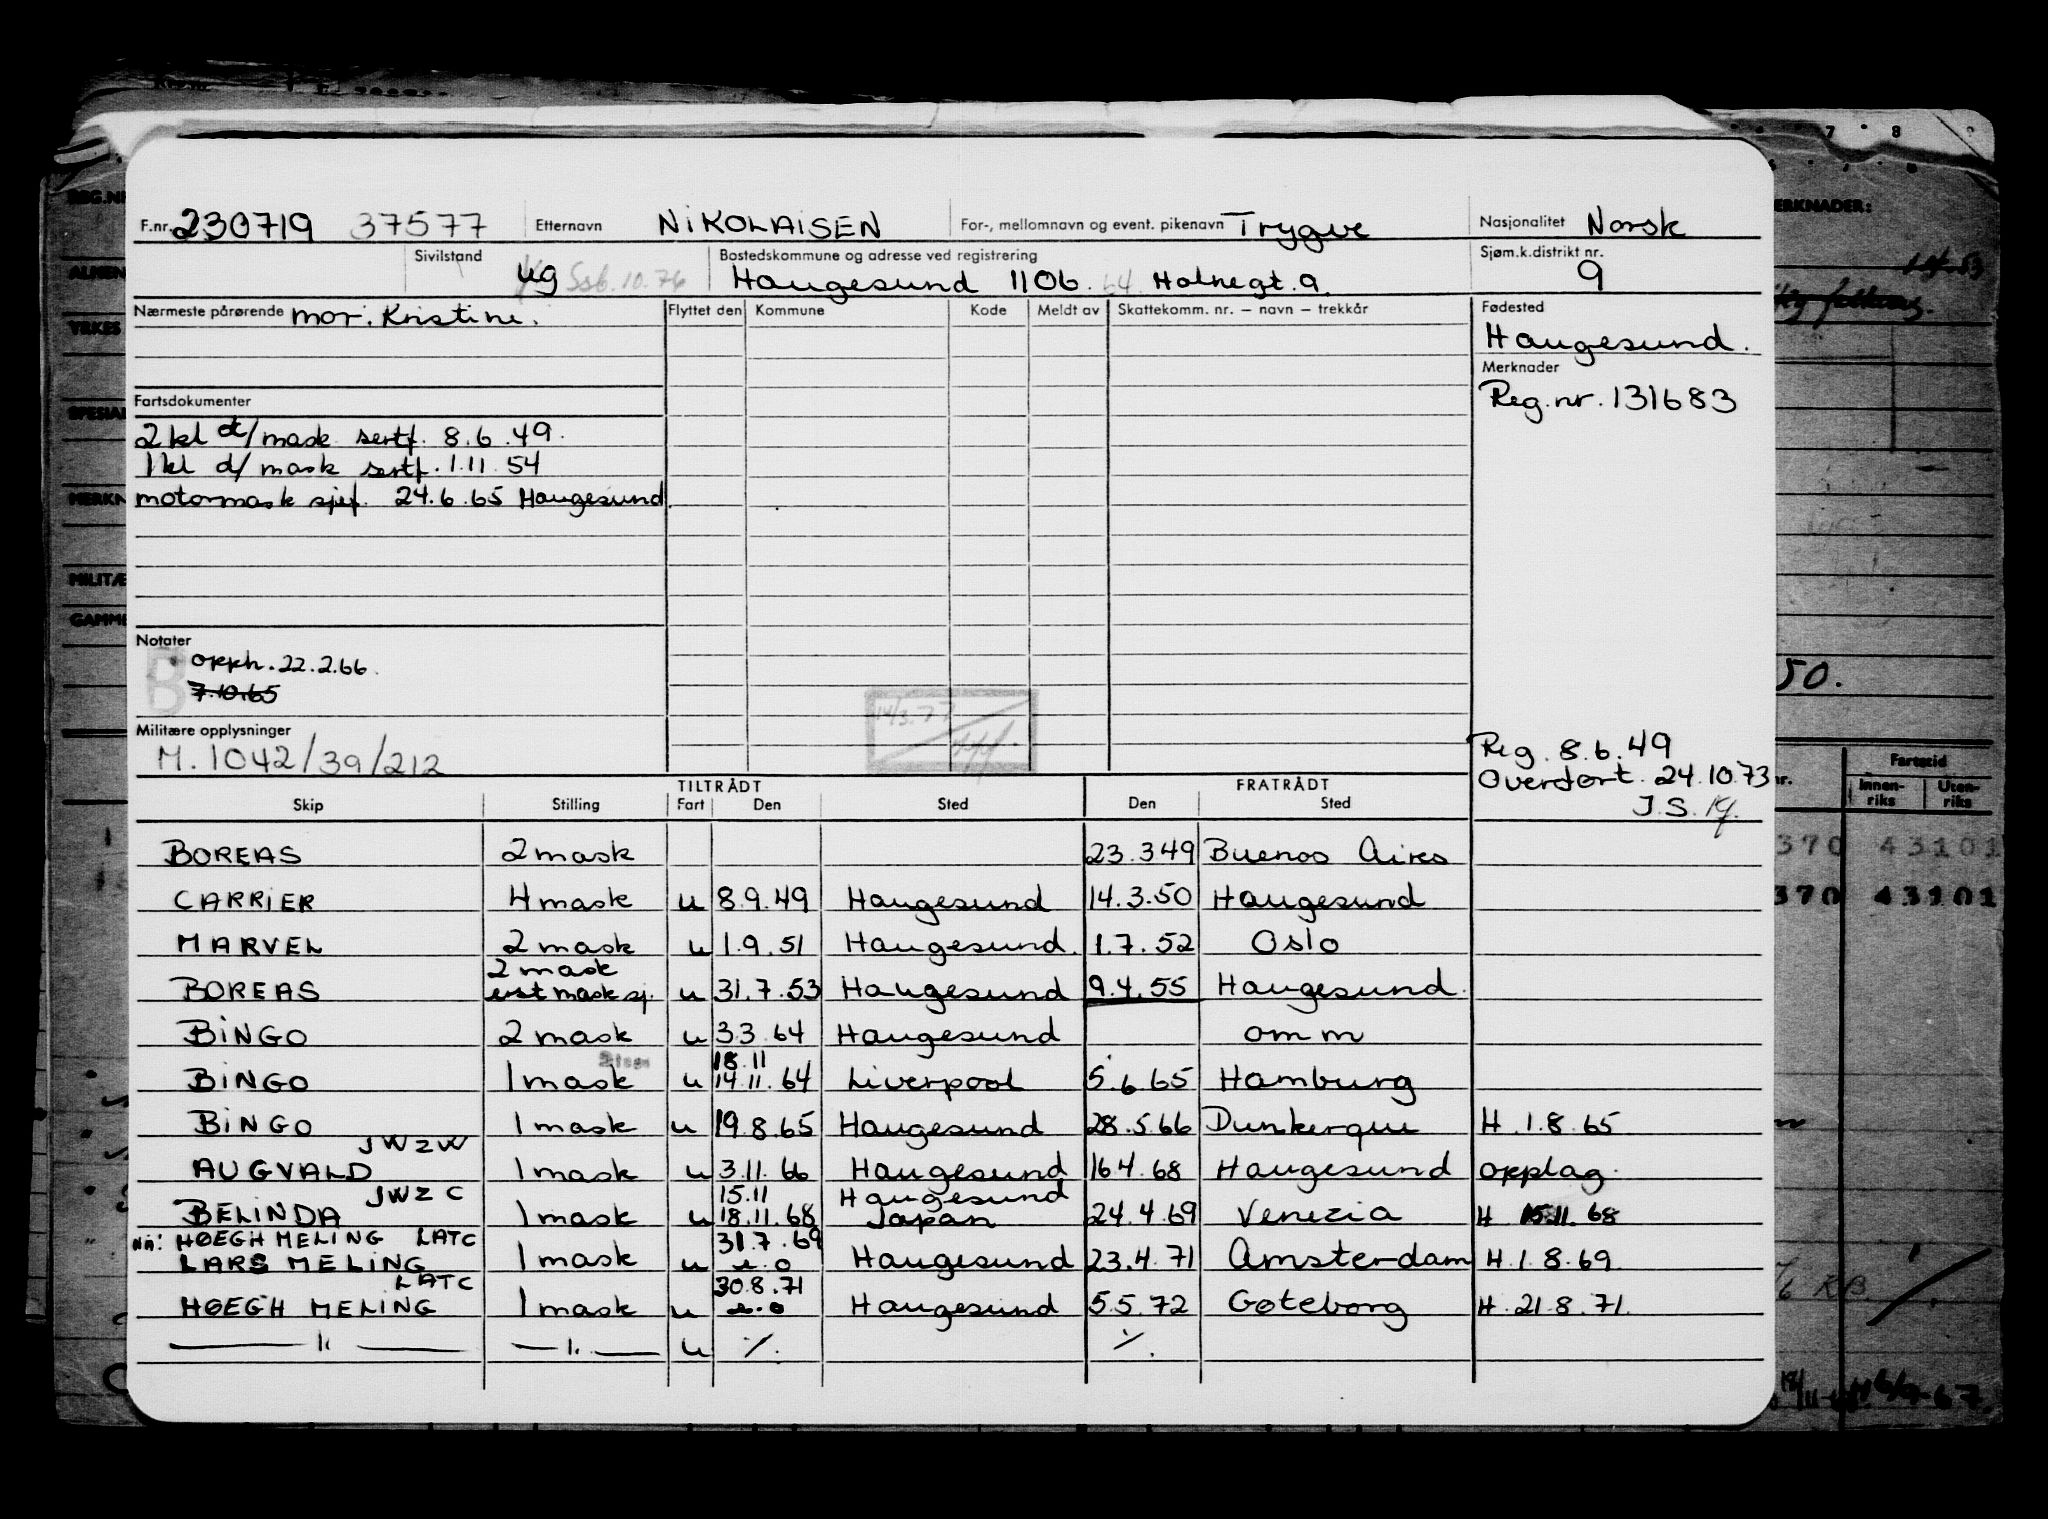 F.nr. 230719 37577 Etternavn NIKOLAISEN For-, mellomnavn og event. pikenavn Trygve Nasjonalitet Norsk
Sivilstand ug Ssb. 10.76 Bostedskommune og adresse ved registrering Haugesund 1106. Holnegt. 9. Sjøm.k.distrikt nr. 9
Nærmeste pårørende mor. Kristine. Flyttet den Kommune Kode Meldt av Skattekomm. nr. – navn – trekkår Fødested
Haugesund.
Merknader
Reg.nr. 131683
Fartsdokumenter
2 kl d/mask sertf. 8.6.49.
1 kl d/mask sertf. 1.11.54
motormask sjef. 24.6.65 Haugesund
Notater
B
opph. 22.2.66.
7.10.65
14/3.77
Militære opplysninger
M. 1042/39/212
Reg. 8.6.49
Overført. 24.10.73
J.S.
TILTRÅDT FRATRÅDT
Skip Stilling Fart Den Sted Den Sted
BOREAS 2 mask 23.3.49 Buenos Aires
CARRIER 4 mask u 8.9.49 Haugesund 14.3.50 Haugesund
MARVEL 2 mask u 1.9.51 Haugesund. 1.7.52 Oslo
2 mask
BOREAS erst mask sj. u 31.7.53 Haugesund 9.4.55 Haugesund.
BINGO 2 mask u 3.3.64 Haugesund omm
18.11
BINGO 1 mask u 14.11.64 Liverpool 5.6.65 Hamburg
BINGO 1 mask u 19.8.65 Haugesund 28.5.66 Dunkerque H. 1.8.65
JWZW
AUGVALD 1 mask u 3.11.66 Haugesund 16.4.68 Haugesund opplag.
JWZC 15.11 Haugesund
BELINDA 1 mask u 18.11.68 Japan 24.4.69 Venezia H 15.11.68
nå: HØEGH MELING LATC 31.7.69
LARS MELING 1 mask u u.o Haugesund 23.4.71 Amsterdam H. 1.8.69.
LATC 30.8.71
HØEGH MELING 1 mask u u.o Haugesund 5.5.72 Gøteborg H. 21.8.71.
— " — — " — u ./. ./.
REG.NR
YRKES
MILITÆ
MERKNADER:
50.
Fartstid
nr. Innen-riks Uten-riks
370 43101
370 43101
7 8